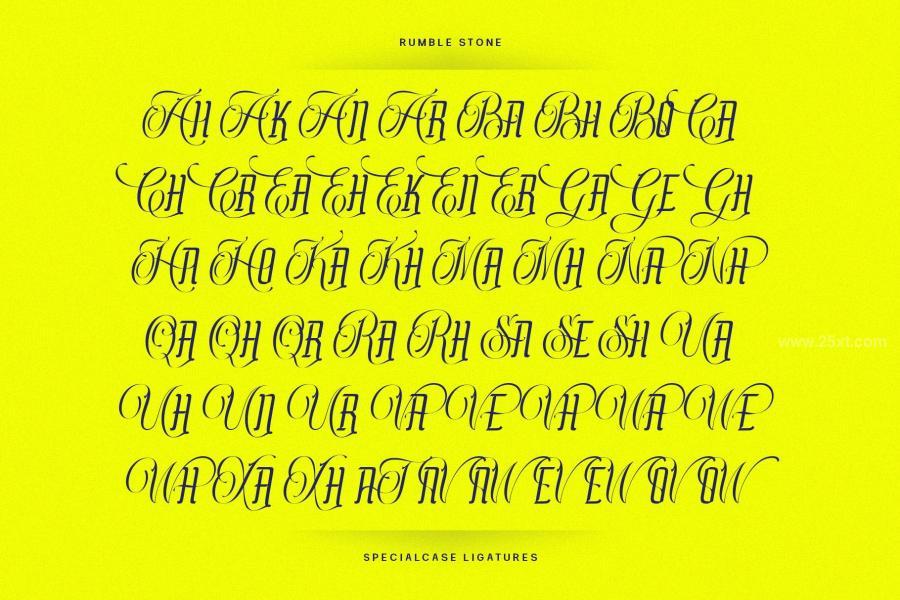 RUMBLE STONE
AH AK AN AR BA BH BO CA
CH CR EA EH EK EN ER GA GE GH
HA HO KA KH MA MH NA NH
QA QH QR RA RH SA SE SH UA
www.25xt.com
UH UN UR VA VE VH WA WE
WH XA XH AT AV AW EV EW OV OW
SPECIALCASE LIGATURES